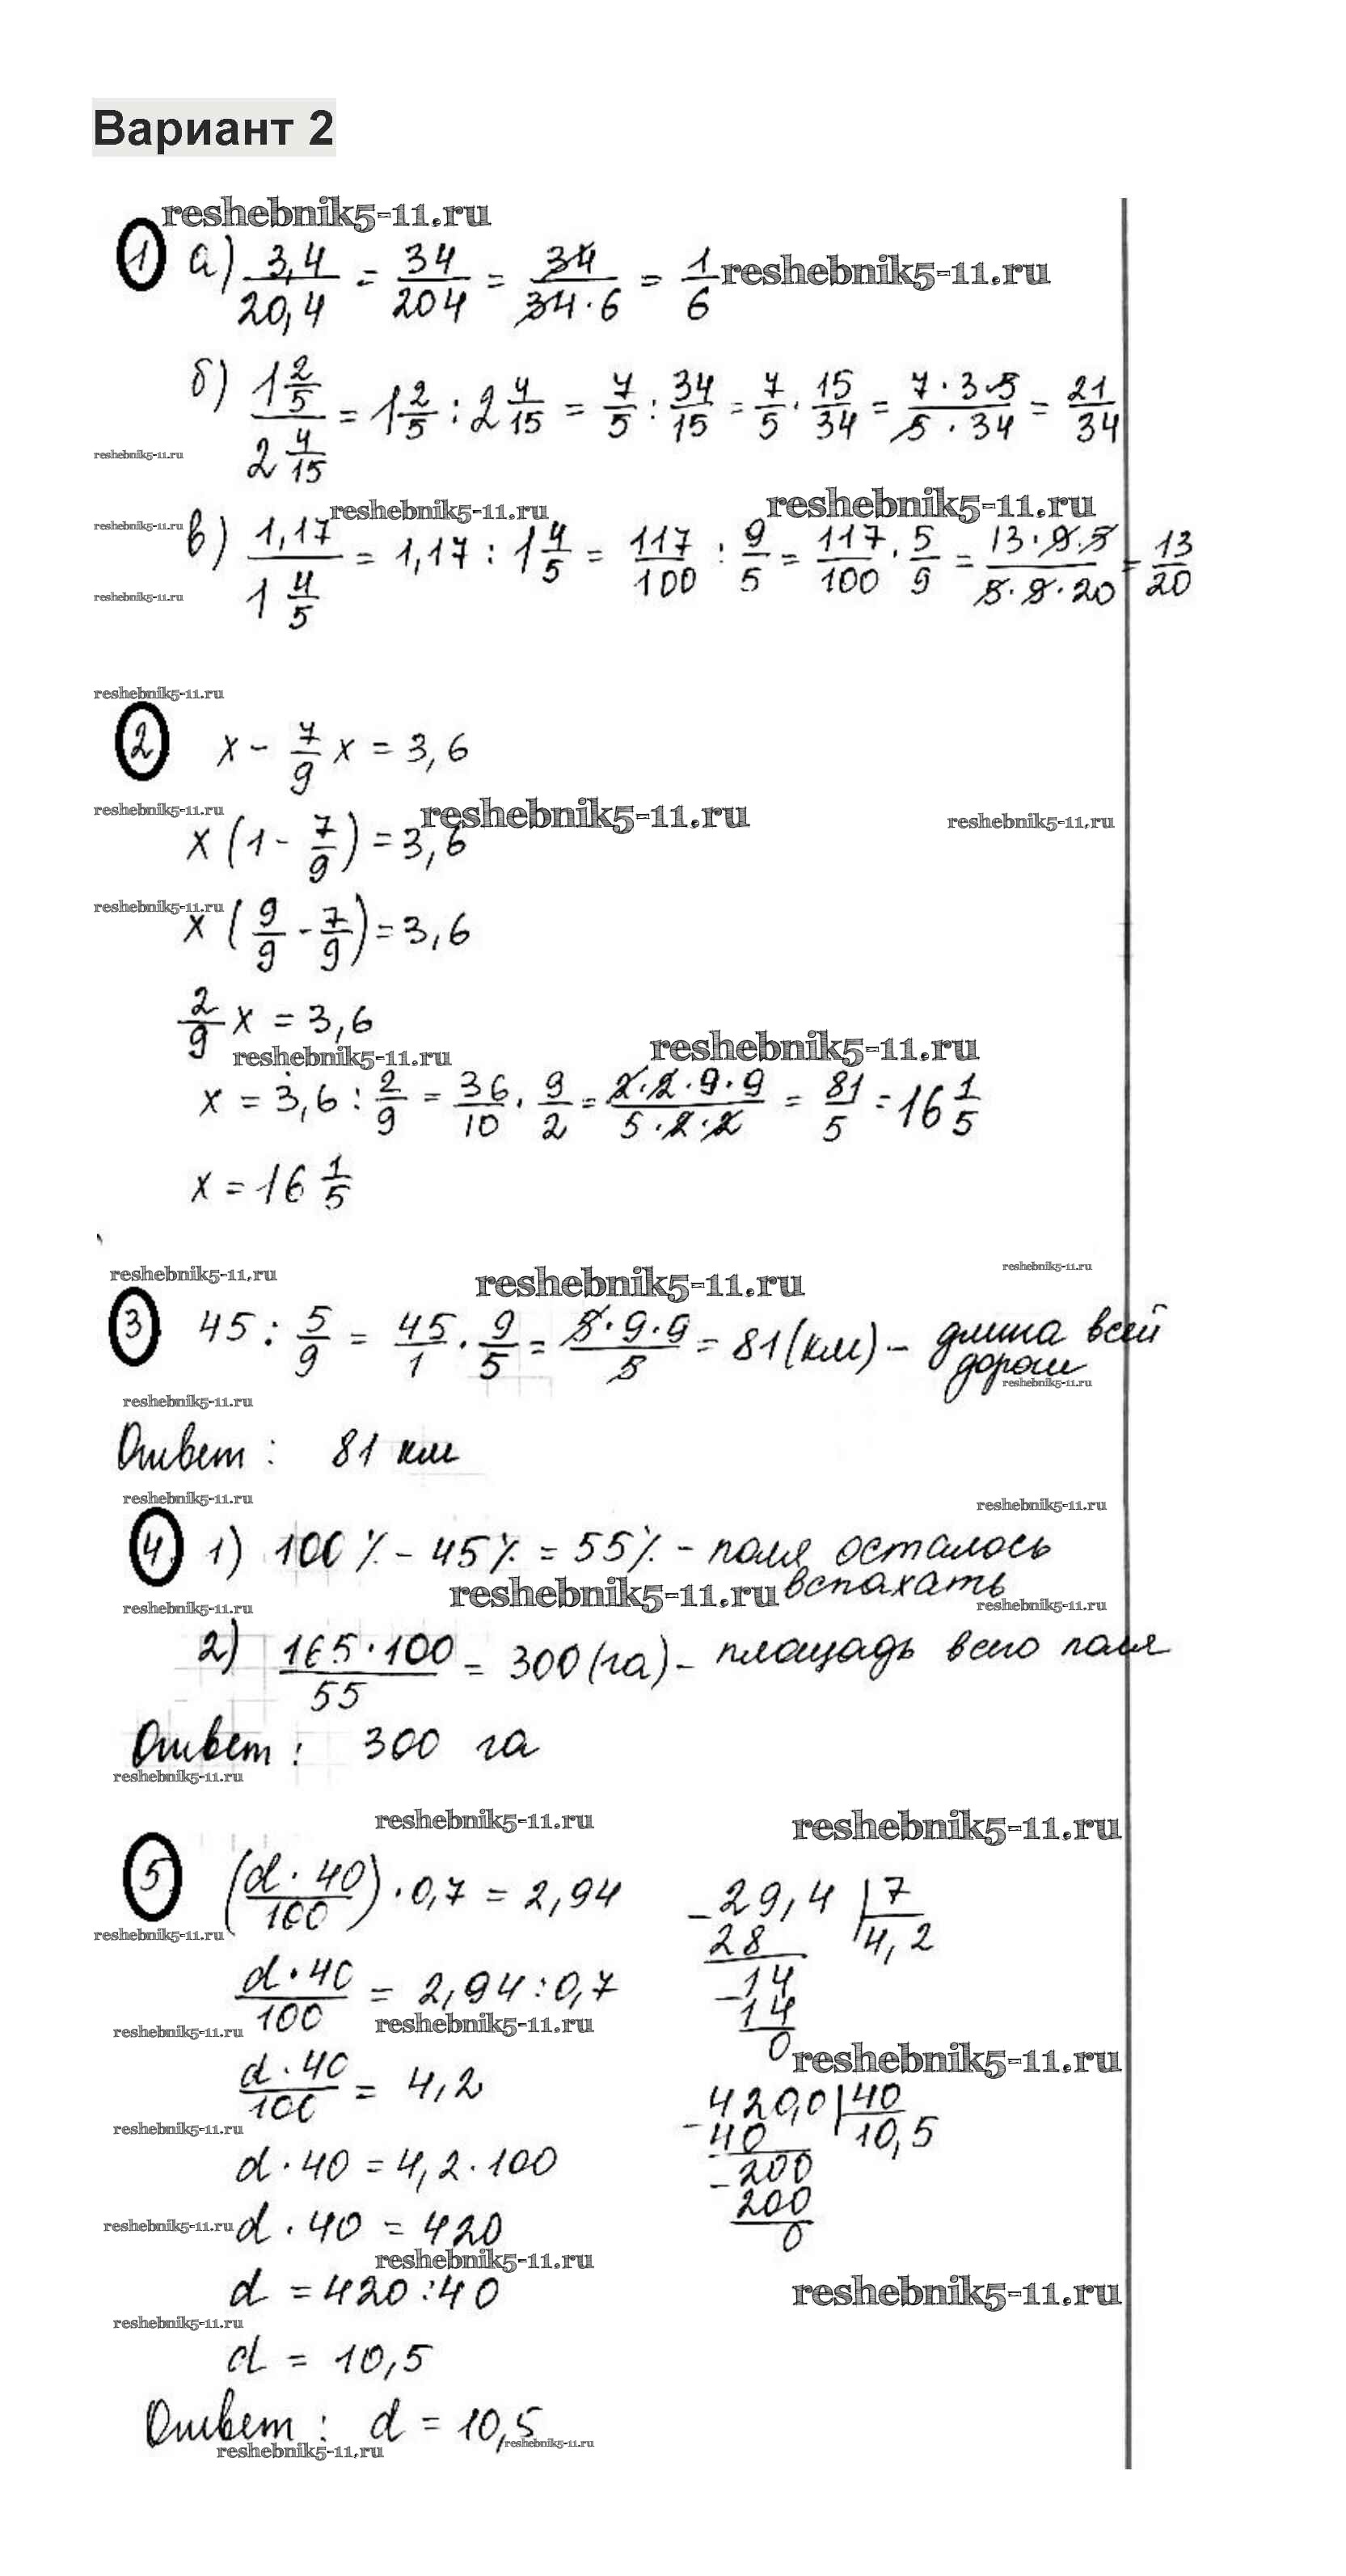 Вариант 2
reshebnik5-11.ru
1 а) 3,4/20,4 = 34/204 = 34/(34·6) = 1/6 reshebnik5-11.ru
б) 1 2/5 / 2 4/15 = 1 2/5 : 2 4/15 = 7/5 : 34/15 = 7/5 · 15/34 = 7·3·5/(5·34) = 21/34
reshebnik5-11.ru
reshebnik5-11.ru reshebnik5-11.ru reshebnik5-11.ru
в) 1,17 / 1 4/5 = 1,17 : 1 4/5 = 117/100 : 9/5 = 117/100 · 5/9 = 13·9·5/(5·9·20) = 13/20
reshebnik5-11.ru
reshebnik5-11.ru
2 x - 7/9 x = 3,6
reshebnik5-11.ru reshebnik5-11.ru reshebnik5-11.ru
x (1 - 7/9) = 3,6
reshebnik5-11.ru
x (9/9 - 7/9) = 3,6
2/9 x = 3,6
reshebnik5-11.ru reshebnik5-11.ru
x = 3,6 : 2/9 = 36/10 · 9/2 = 2·2·9·9/(5·2·2) = 81/5 = 16 1/5
x = 16 1/5
reshebnik5-11.ru reshebnik5-11.ru reshebnik5-11.ru
3 45 : 5/9 = 45/1 · 9/5 = 5·9·9/5 = 81 (км) - длина всей
дороги
reshebnik5-11.ru reshebnik5-11.ru
Ответ: 81 км
reshebnik5-11.ru reshebnik5-11.ru
4 1) 100% - 45% = 55% - поля осталось
reshebnik5-11.ru вспахать
reshebnik5-11.ru reshebnik5-11.ru
2) 165·100/55 = 300 (га) - площадь всего поля
Ответ: 300 га
reshebnik5-11.ru
reshebnik5-11.ru reshebnik5-11.ru
5 (d·40/100) · 0,7 = 2,94
29,4 | 7
28 4,2
reshebnik5-11.ru
d·40/100 = 2,94 : 0,7
-14
14
0
reshebnik5-11.ru reshebnik5-11.ru
reshebnik5-11.ru
d·40/100 = 4,2
420,0 | 40
-40 10,5
reshebnik5-11.ru
d·40 = 4,2·100
-200
200
0
reshebnik5-11.ru d·40 = 420
reshebnik5-11.ru
d = 420 : 40
reshebnik5-11.ru
reshebnik5-11.ru
d = 10,5
Ответ: d = 10,5
reshebnik5-11.ru reshebnik5-11.ru